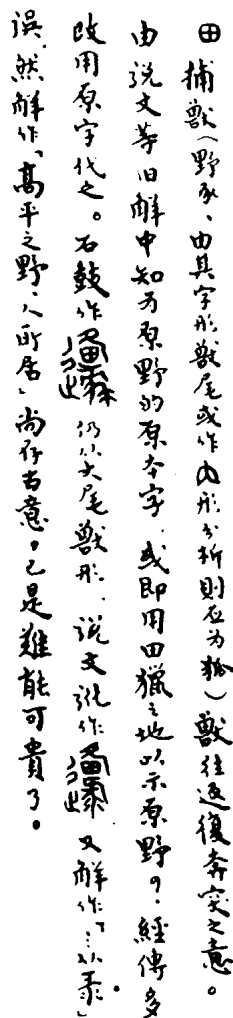 田捕獸（野豕、由其字形獸尾或作内形分析則应为狐）獸往返復奔突之意。
由说文等旧解中知为原野的原本字，或即用田獵之地以示原野的，經傳多
改用原字代之。石鼓作邍仍从大尾獸形，说文訛作邍又解作「…从彔」
误，然解作「高平之野，人所居」尚存古意，已是難能可貴了。